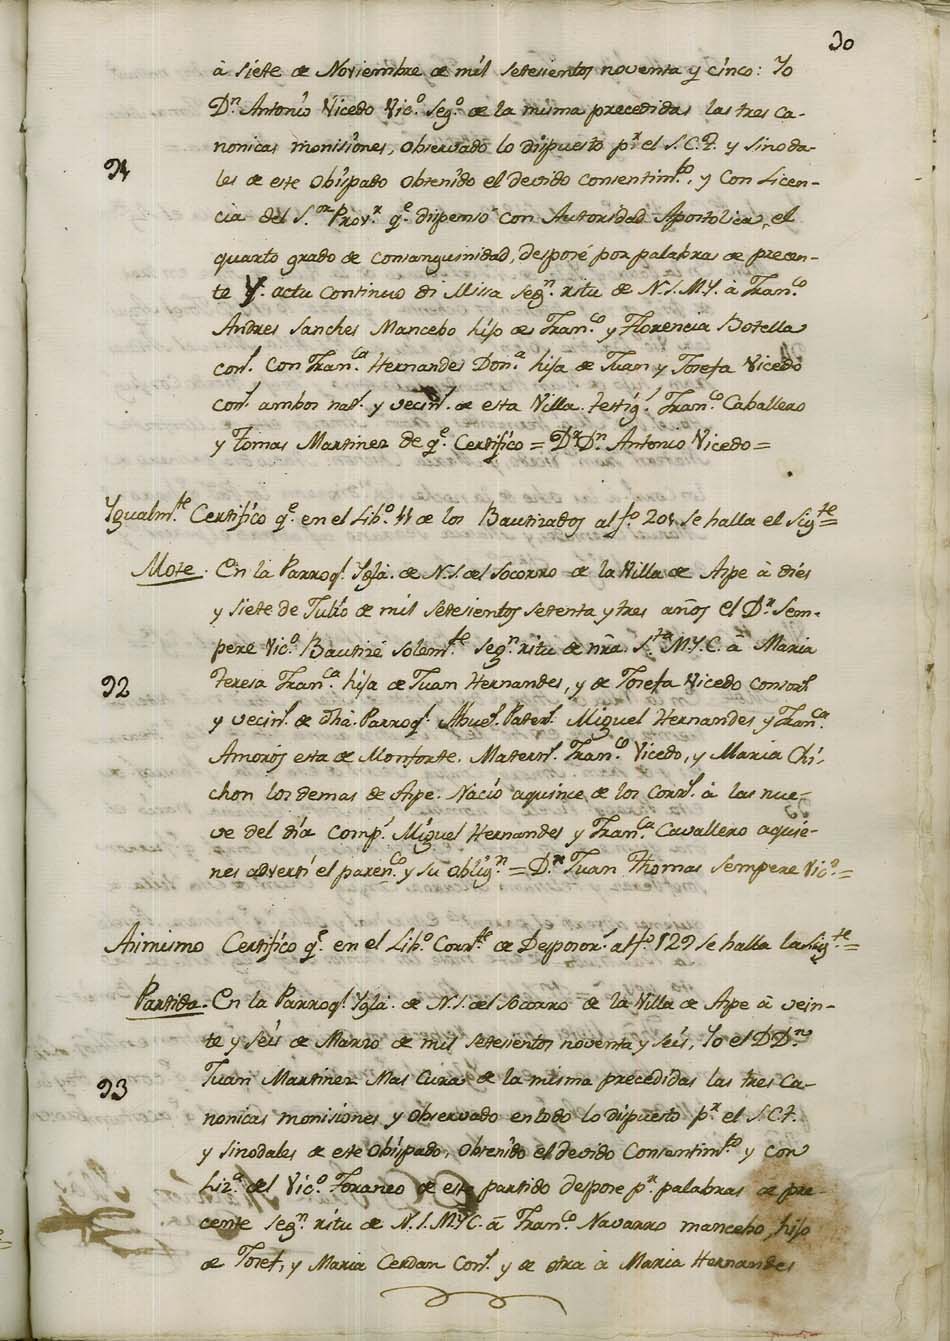 30
à siete de Noviembre de mil setesientos noventa y cinco: Yo
Dn. Antonio Vicedo Vico. Sego. de la misma precedidas las tres Ca-
nonicas monisiones, observado lo dispuesto pr. el S.C.T. y Sinoda-
91
les de este Obispado obtenido el devido consentimto., y con Licen-
cia del Sor. Provr. qe. dispensó con Autoridad Apostolica, el
quarto grado de consanguinidad, desposé por palabras de precen-
te Y. actu continuo di Missa segn. ritu de N.S.M.Y. à Franco.
Andres Sanches Mancebo hijo de Franco. y Florencia Botella
cons. con Franca. Hernandes Dona. hija de Juan y Josefa Vicedo
cons. ambos nats. y vecins. de esta Villa. testigs. Franco. Caballero
y Tomas Martinez de qe. Certifico = Dr. Dn. Antonio Vicedo =
Ygualmte. Certifico qe. en el Libo. 11 de los Bautizados al fo. 201 se halla el Sigte. =
Mote. En la Parroql. Ygla. de N.S. del Socorro de la Villa de Aspe à dies
y siete de Julio de mil setesientos setenta y tres años el Dr. Sem-
pere Vico. Bautizé solemte. segn. ritu de nra. Sta. M.Y.C. à Maria
92
Teresa Franca. hija de Juan Hernandes, y de Josefa Vicedo consors.
y vecins. de dha. Parroql. Abuels. Paters. Miguel Hernandes y Franca.
Amorós esta de Monforte. Materns. Franco. Vicedo, y Maria Chi-
chon los demas de Aspe. Nació aquince de los Corrs. à las nue-
ve del dia comps. Miguel Hernandes y Franca. Cavallero aquie-
nes advertí el parenco. y su oblign. = Dr. Juan Thomas Sempere Vico. =
Asimismo Certifico qe. en el Libo. Corrte. de Desposors. al fo. 129 se halla la Sigte. =
Partida. En la Parroql. Ygla. de N.S. del Socorro de la Villa de Aspe à vein-
te y seis de Marzo de mil setesientos noventa y seis, Yo el D Dn.
93
Juan Martinez Mas Cura de la misma precedidas las tres Ca-
nonicas monisiones y observado entodo lo dispuesto pr. el S.C.T.
y sinodales de este Obispado, obtenido el devido Consentimto. y con
Liza. del Vico. Foraneo de este partido despose pr. palabras de pre-
cente segn. ritu de N.S.M.Y.C. à Franco. Navarro mancebo, hijo
de Josef, y Maria Cerdan Cons. y de otra à Maria Hernandes